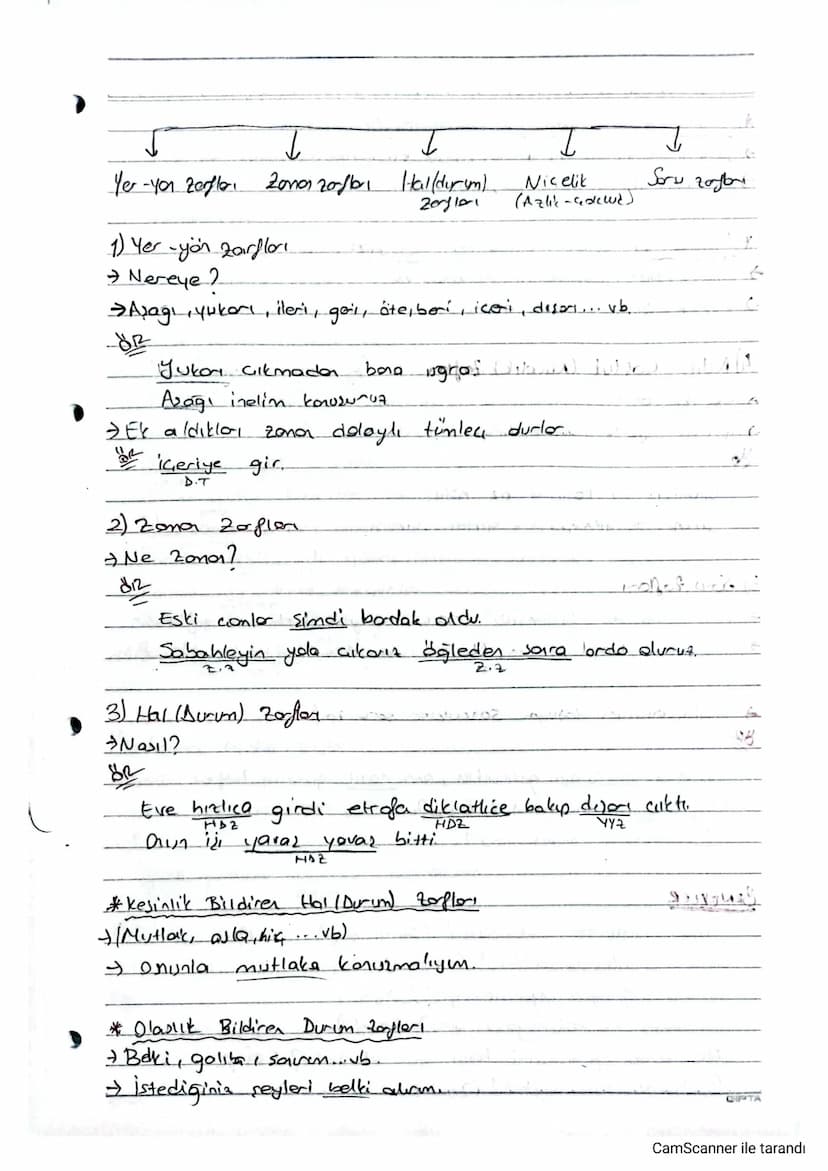 Yer-yön zarfları Zaman zarfları Hal(durum) Nicelik Soru zarfları
zarfları (Azlık-çokluk)
1) Yer-yön zarfları
→ Nereye?
→ Aşağı, yukarı, ileri, geri, öte, beri, içeri, dışarı... vb.
ÖR
Yukarı çıkmadan bana uğra
Aşağı inelim konuşuruz
→ Ek aldıkları zaman dolaylı tümleç durlar.
ÖR içeriye gir.
D.T
2) Zaman Zarfları
→ Ne Zaman?
ÖR
Eski camlar şimdi bardak oldu.
Sabahleyin yola çıkarız öğleden sonra orda oluruz.
Z.Z Z.Z
3) Hal (Durum) Zarfları
→ Nasıl?
ÖR
Eve hızlıca girdi etrafa dikkatlice bakıp dışarı çıktı.
HDZ HDZ YYZ
Onun işi yavaş yavaş bitti.
HDZ
* Kesinlik Bildiren Hal (Durum) Zarfları
→ (Mutlak, asla, hiç ... vb)
→ Onunla mutlaka konuşmalıyım.
* Olasılık Bildiren Durum Zarfları
→ Belki, galiba, sanırım...vb.
→ İstediğiniz şeyleri belki alırım.
GIPTA
CamScanner ile tarandı